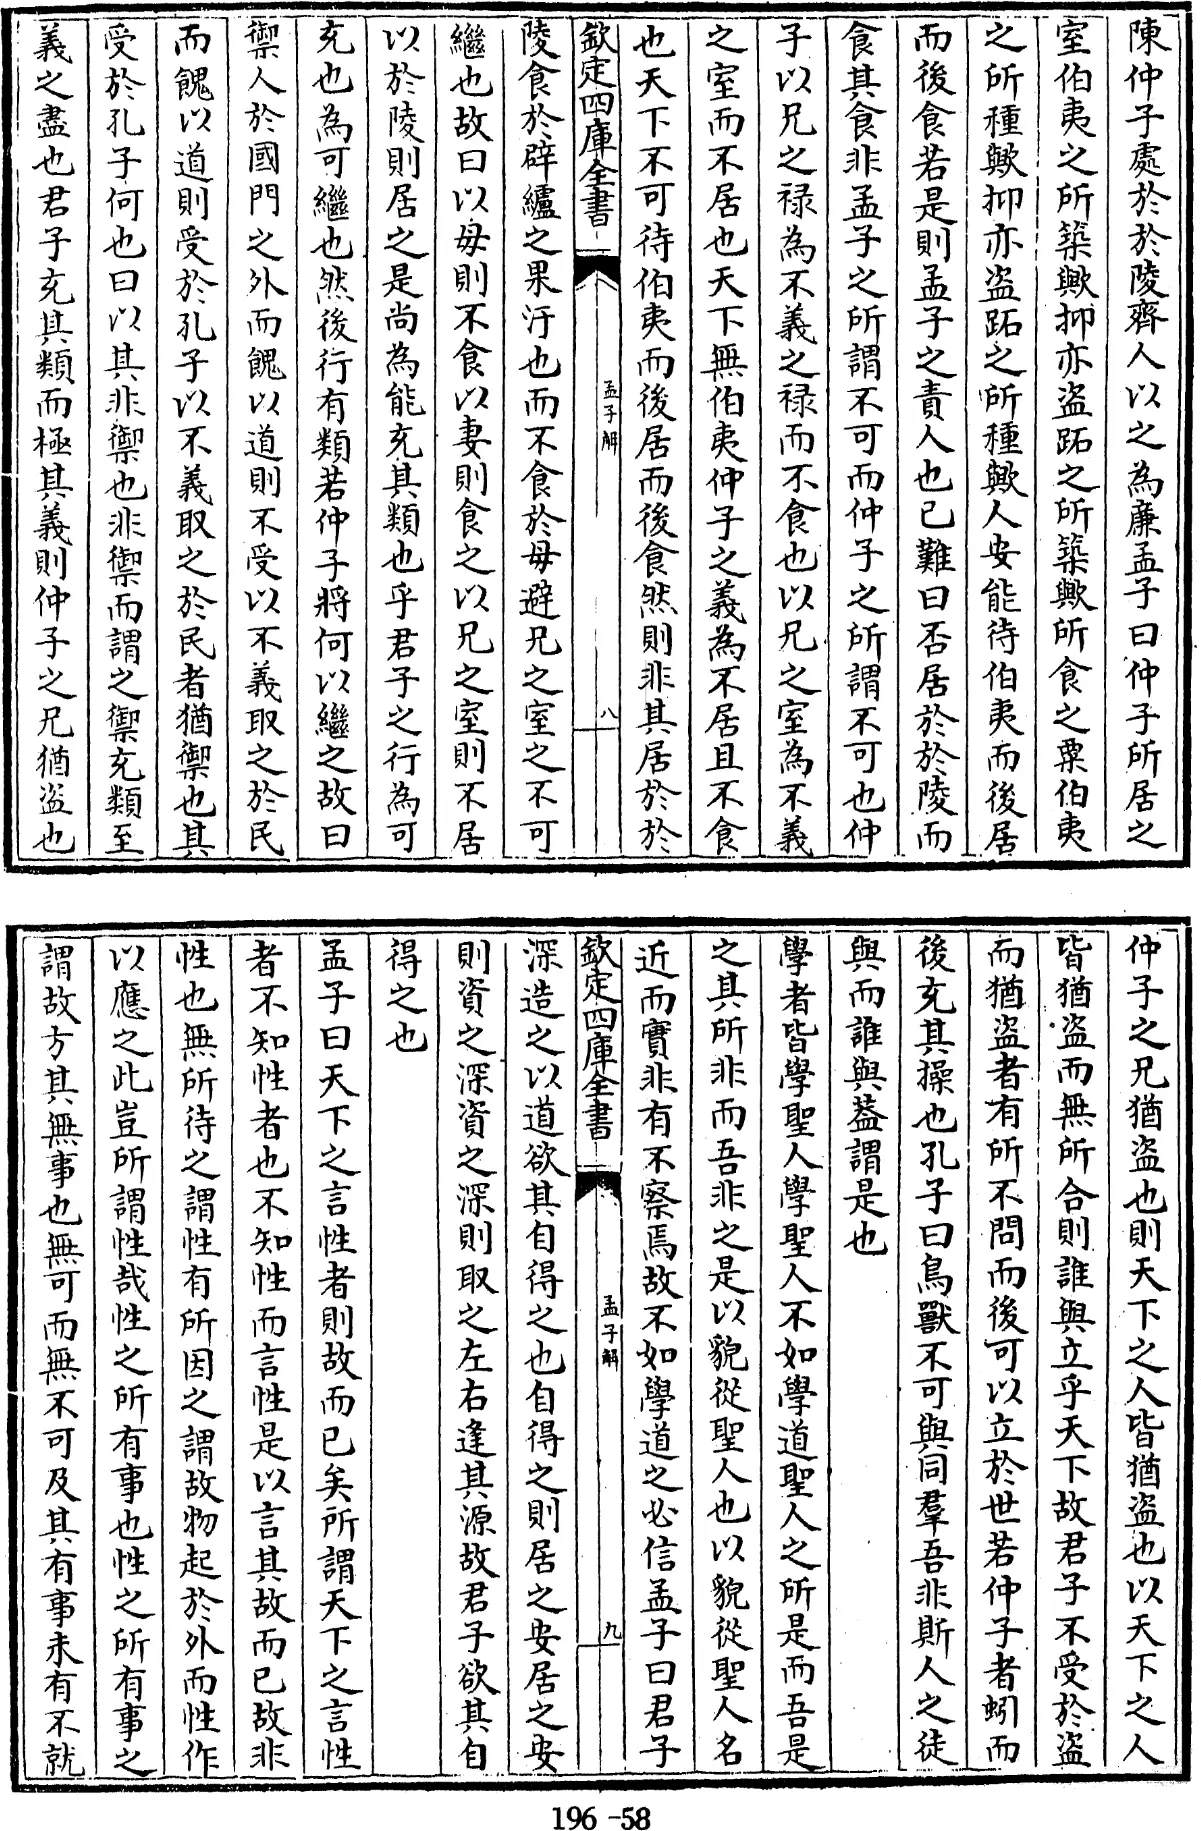 陳仲子處於於陵齊人以之為廉孟子曰仲子所居之
室伯夷之所築歟抑亦盜跖之所築歟所食之粟伯夷
之所種歟抑亦盜跖之所種歟人安能待伯夷而後居
而後食若是則孟子之責人也已難曰否居於於陵而
食其食非孟子之所謂不可而仲子之所謂不可也仲
子以兄之祿為不義之祿而不食也以兄之室為不義
之室而不居也天下無伯夷仲子之義為不居且不食
也天下不可待伯夷而後居而後食然則非其居於於
欽定四庫全書 孟子解 八
陵食於辟纑之果汙也而不食於母避兄之室之不可
繼也故曰以母則不食以妻則食之以兄之室則不居
以於陵則居之是尚為能充其類也乎君子之行為可
充也為可繼也然後行有類若仲子將何以繼之故曰
禦人於國門之外而餽以道則不受以不義取之於民
而餽以道則受於孔子以不義取之於民者猶禦也其
受於孔子何也曰以其非禦也非禦而謂之禦充類至
義之盡也君子充其類而極其義則仲子之兄猶盜也
仲子之兄猶盜也則天下之人皆猶盜也以天下之人
皆猶盜而無所合則誰與立乎天下故君子不受於盜
而猶盜者有所不問而後可以立於世若仲子者蚓而
後充其操也孔子曰鳥獸不可與同羣吾非斯人之徒
與而誰與葢謂是也
學者皆學聖人學聖人不如學道聖人之所是而吾是
之其所非而吾非之是以貌從聖人也以貌從聖人名
近而實非有不察焉故不如學道之必信孟子曰君子
欽定四庫全書 孟子解 九
深造之以道欲其自得之也自得之則居之安居之安
則資之深資之深則取之左右逢其源故君子欲其自
得之也
孟子曰天下之言性者則故而已矣所謂天下之言性
者不知性者也不知性而言性是以言其故而已故非
性也無所待之謂性有所因之謂故物起於外而性作
以應之此豈所謂性哉性之所有事也性之所有事之
謂故方其無事也無可而無不可及其有事未有不就
196-58